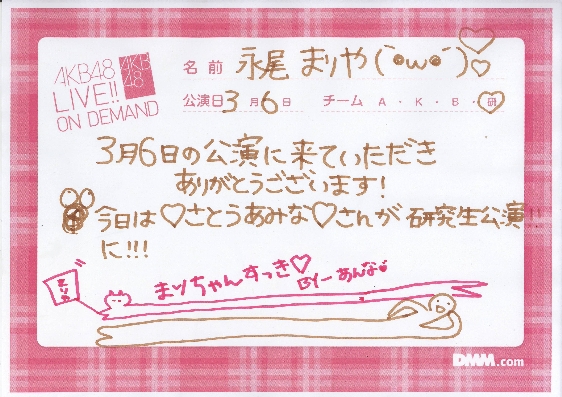 AKB48
LIVE!!
ON DEMAND
AKB
48
名前 永尾 まりや(`•ω•´)♡♡
公演日 3月6日 チーム A・K・B・研
3月6日の公演に来ていただき
ありがとうございます!
今日は♡さとうあみな♡さんが研究生公演!!
に!!!
まりや
まりちゃんすっき♡
BYーあんな
DMM.com